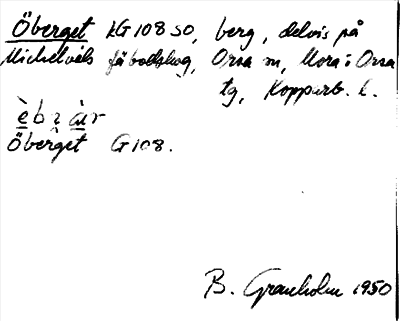 Öberget kG 108 SO, berg, delvis på
Michelvåls fäbodskog, Orsa sn, Mora o Orsa
tg, Kopparb. l.
Öberget G 108.
B. Granholm 1950